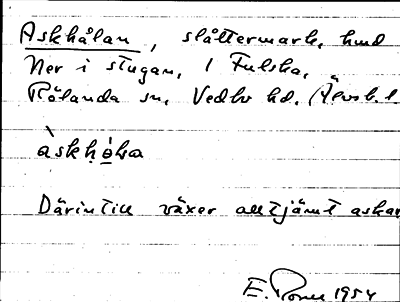 Askhålan, slåttermark, hmd
Ner i stugan, 1 Fulska,
Rölanda sn, Vedbo hd. Älvsb. l
àskhòla
Därintill växer alltjämt askar
E. 1954